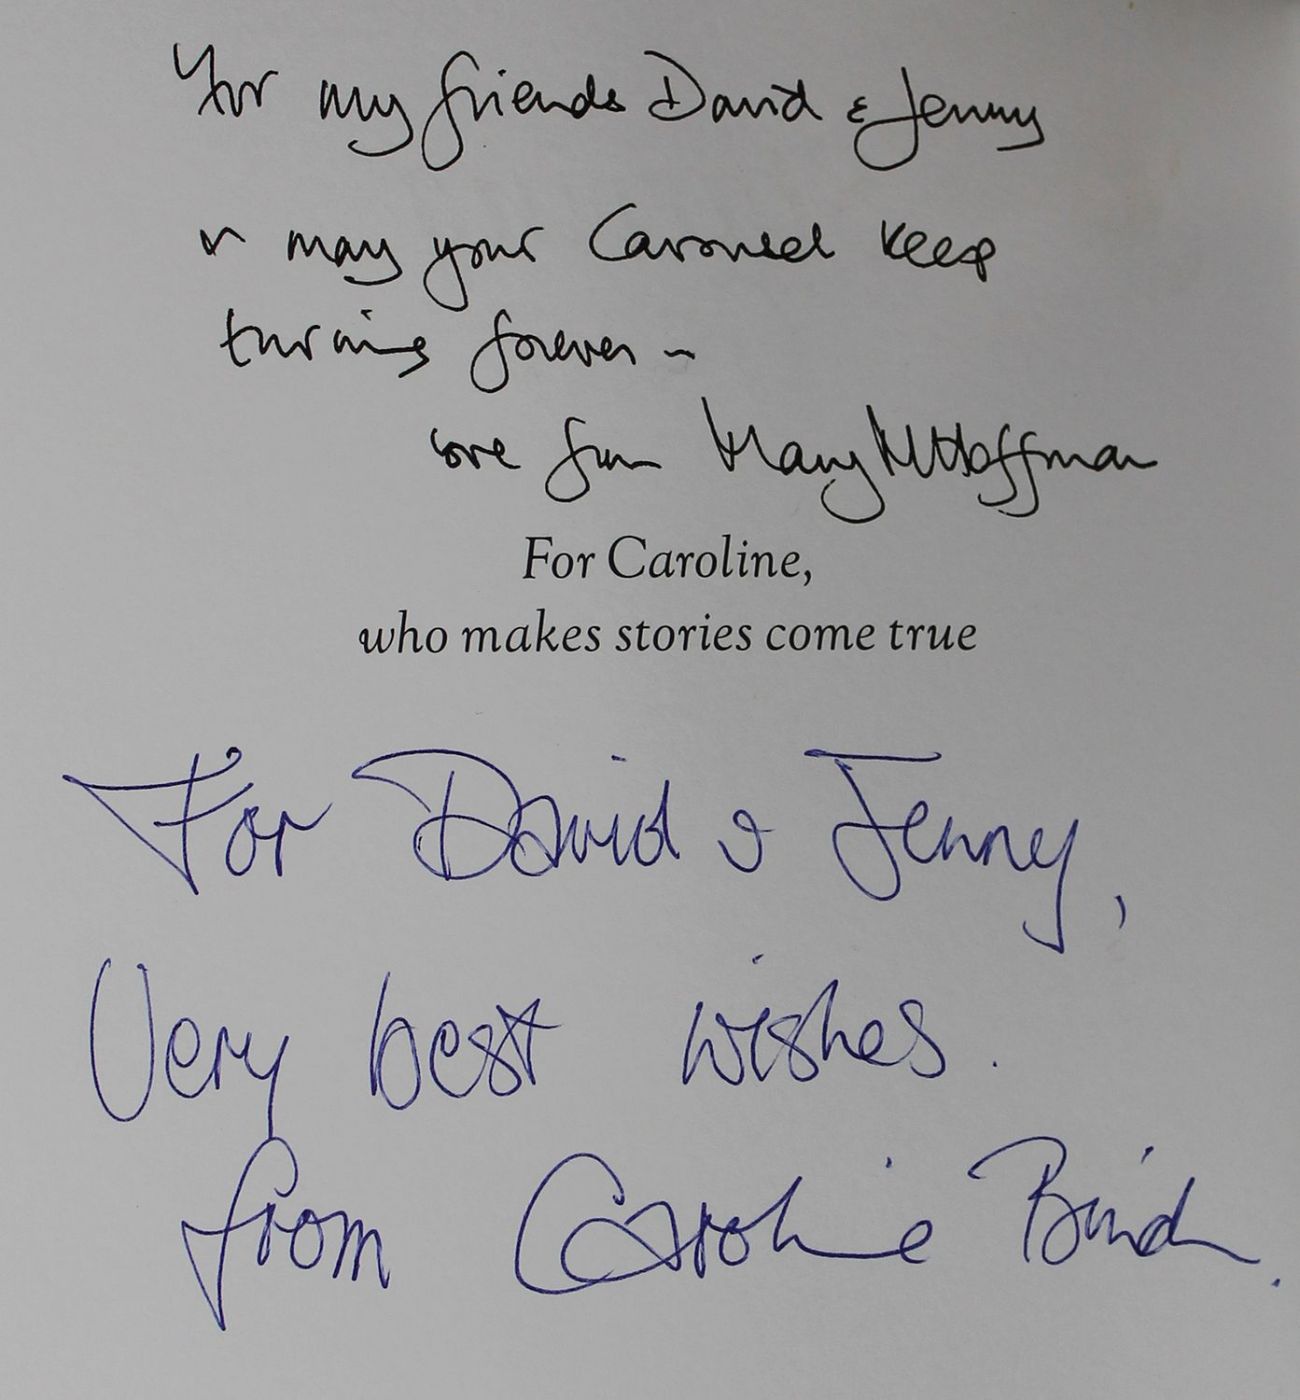 For my friends David & Jenny
~ may your Carousel keep
turning forever ~
love from Mary Hoffman
For Caroline,
who makes stories come true
For David & Jenny,
Very best wishes.
from Caroline Binch.